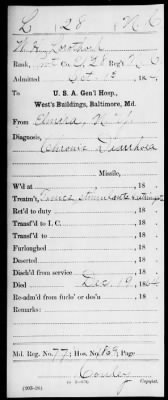 L 28 N.C.
W. H.
Rank, Pvt Co. 28 Reg't N.C.
Admitted Oct. 186
To U. S. A. Gen'l Hosp.,
West's Buildings, Baltimore, Md.
From Elmira, N.Y.
Diagnosis,
Chronic Diarrhoea
Missile,
W'd at 18
Treatm't, Tonics stimulants & astringents
Ret'd to duty 18
Transf'd to I. C. 18
Transf'd to 18
Furloughed 18
Deserted 18
Disch'd from service 18
Died Dec. 19 1864
Re-adm'd from furlo' or des'n 18
Remarks:
Md. Reg. No. 77; Hos. No. Page
(203–20)
Copyist.